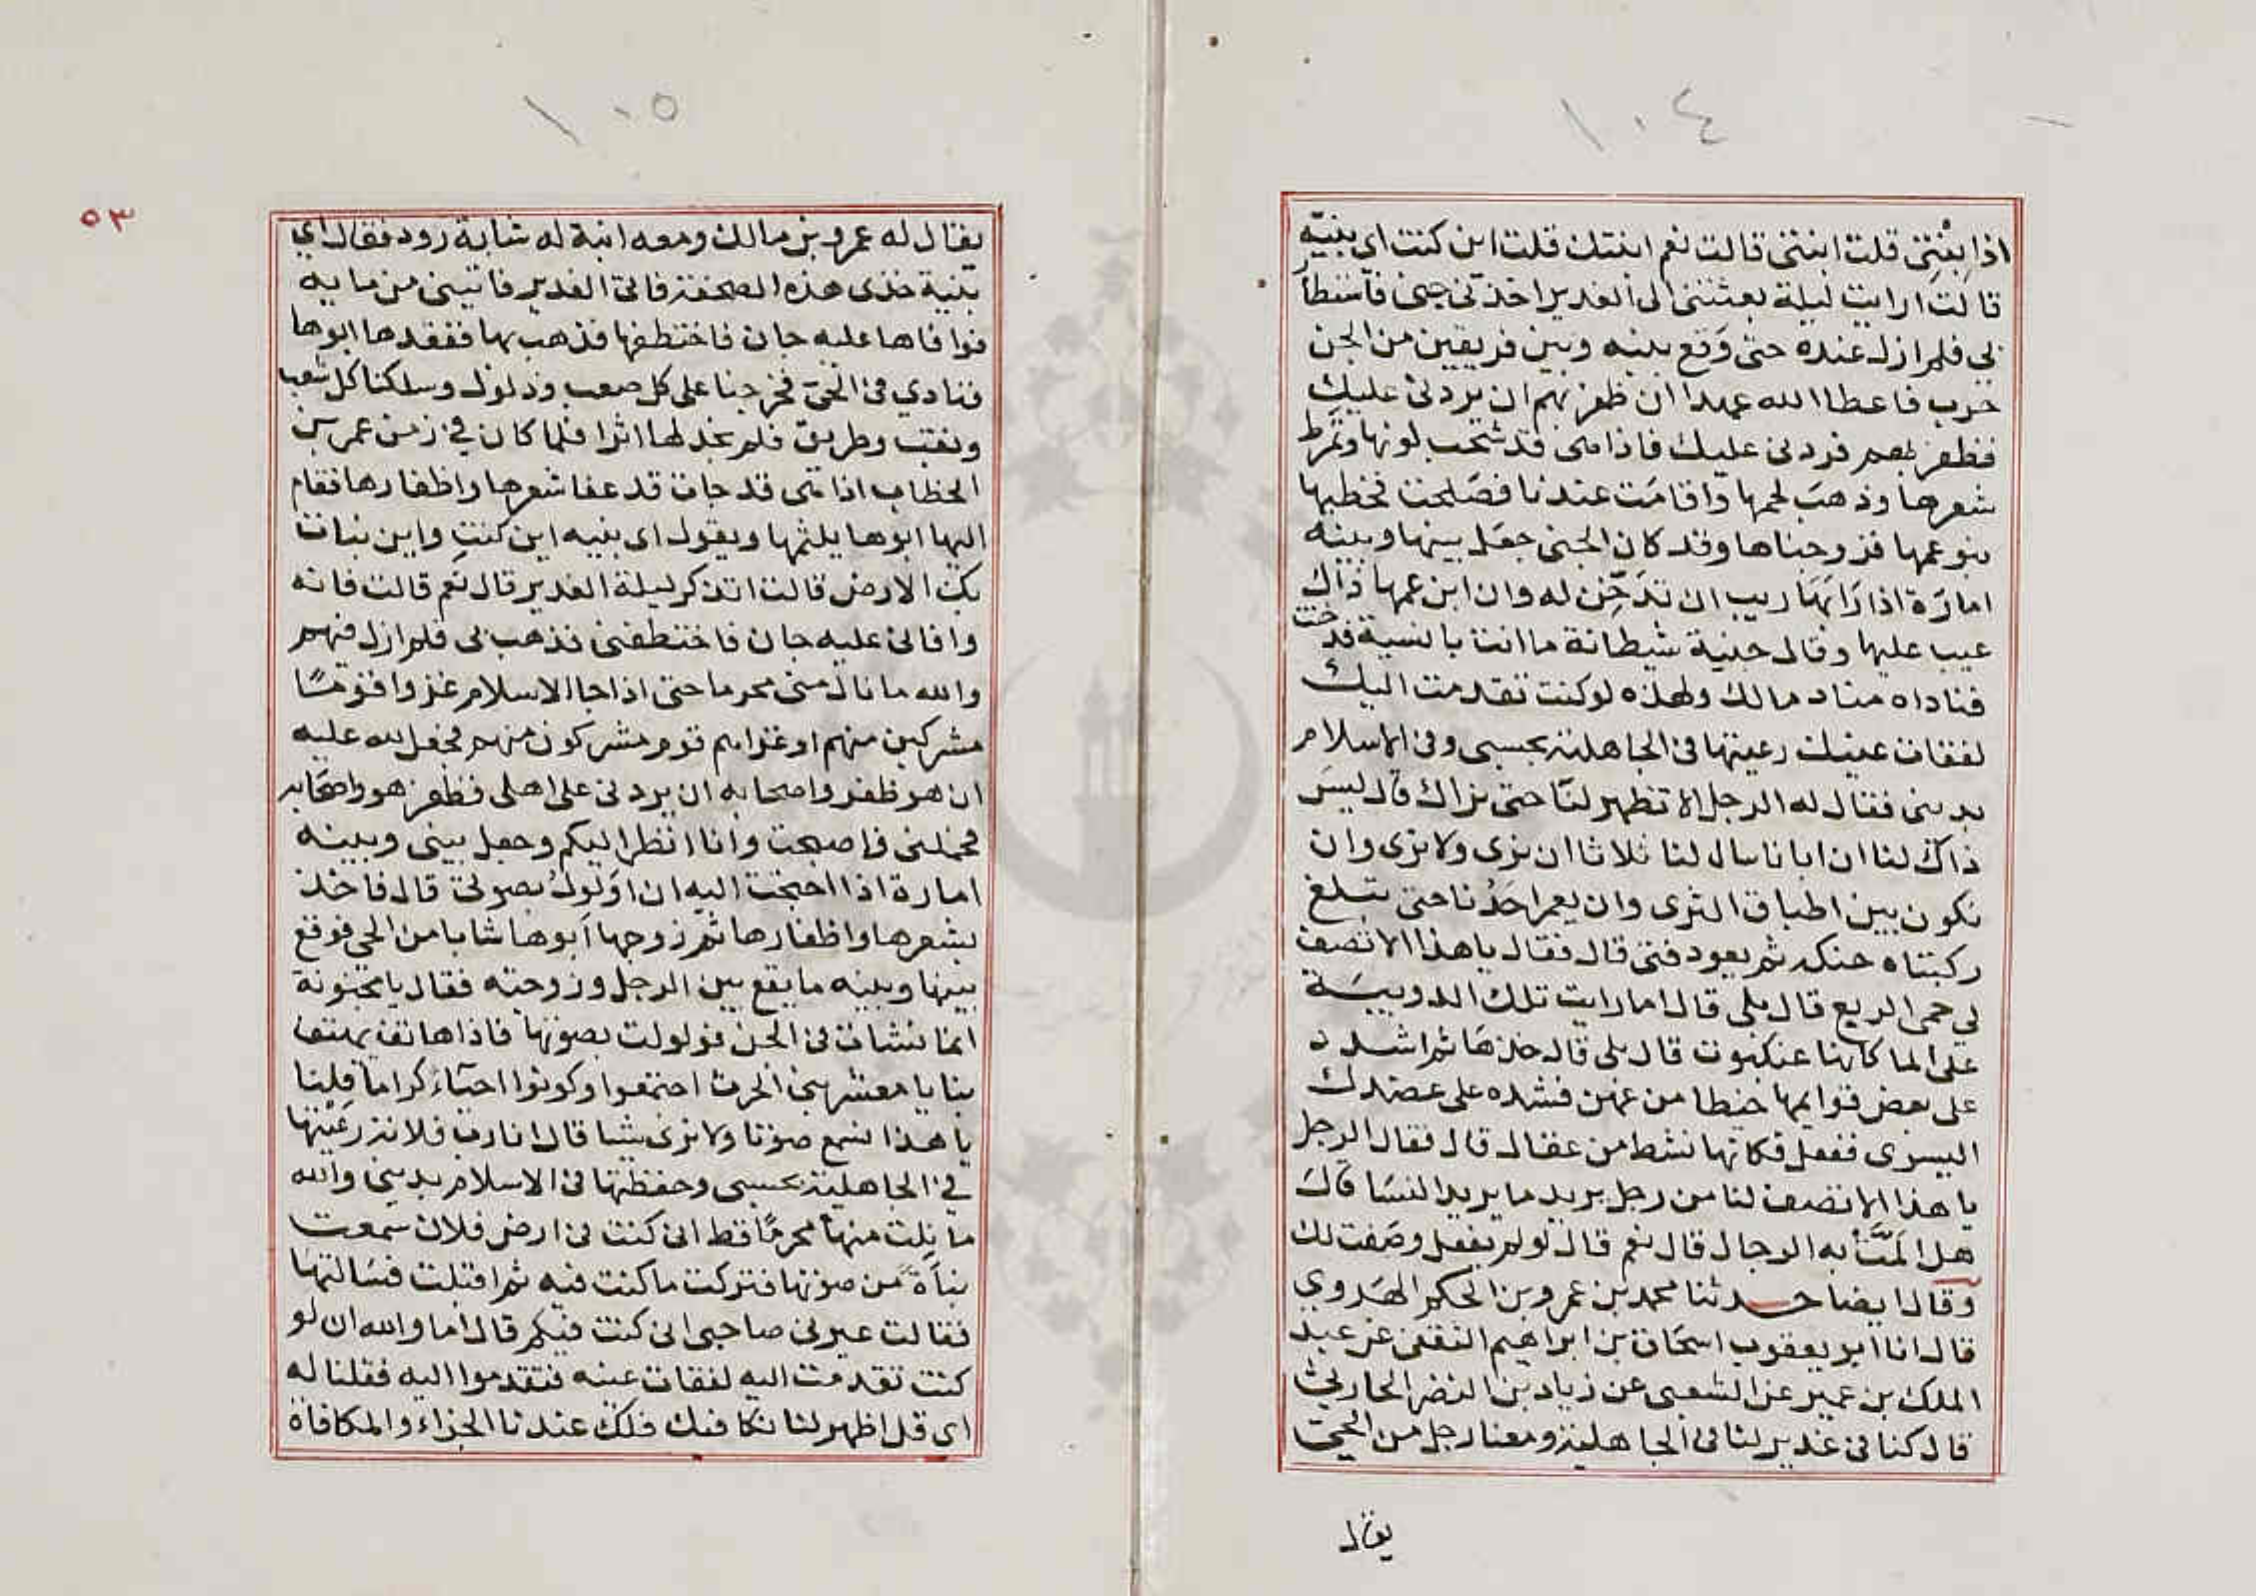 ١٠٤
اذا بنتى قلت ابنتى قالت نعم ابنتك قلت اين كنت اى بنيه
قالت ارايت ليلة بعثتنى الى الغدير اخذنى جنى فاستطا
بى فلم ازل عنده حتى وقع بينه وبين فريقين من الجن
حرب فاعطا الله عهدا ان ظفر بهم ان يردنى عليك
فظفر بهم فردنى عليك فاذا هى قد شحب لونها وتمرط
شعرها وذهب لحمها واقامت عندنا فصلحت فخطبها
بنو عمها فزوجناها وقد كان الجنى جعل بينها وبينه
امارة اذا رابها ريب ان تدخن له وان ابن عمها ذاك
عيب عليها وقال جنية شيطانة ما انت بانسية فدخنت
فناداه مناد مالك ولهذه لو كنت تقدمت اليك
لفقات عينك رعيتها فى الجاهلية بحسبى وفى الاسلام
بدينى فقال له الرجل الا تظهر لنا حتى نراك قال ليس
ذاك لنا ان ابانا سال لنا ثلاثا ان نرى ولا نرى وان
نكون بين اطباق الثرى وان يعمر احدنا حتى تبلغ
ركبتاه حنكه ثم يعود فتى قال فقال يا هذا الا تصف
لى حمى الربع قال بلى قال اما رايت تلك الدويبة
على الما كانها عنكبوت قال بلى قال خذها ثم اشدد
على بعض قوايمها خيطا من عهن فشده على عضدك
اليسرى ففعل فكانما نشط من عقال قال فقال الرجل
يا هذا الا تصف لنا من رجل يريد ما يريد النسا قال
هل المت به الرجال قال نعم قال لو لم يفعل وصفت لك
وقال ايضا حدثنا محمد بن عمرو بن الحكم الهروي
قال انا ابو يعقوب اسحاق بن ابراهيم الثقفى عن عبد
الملك بن عمير عن الشعبى عن زياد بن النضر الحارثى
قال كنا فى غدير لنا فى الجاهلية ومعنا رجل من الحى
يقال
١٠٥
٥٣
يقال له عمرو بن مالك ومعه ابنة له شابة رود فقال اي
بنية خذى هذه الصحفة فاتى الغدير فاتينى من مايه
فوافاها عليه جان فاختطفها فذهب بها ففقدها ابوها
فنادي فى الحى فخرجنا على كل صعب وذلول وسلكنا كل شعب
ونقب وطريق فلم نجد لها اثرا فلما كان في زمن عمر بن
الخطاب اذا هى قد جات قد عفا شعرها واظفارها فقام
اليها ابوها يلثمها ويقول اى بنيه اين كنت واين نبات
بك الارض قالت اتذكر ليلة الغدير قال نعم قالت فانه
وافانى عليه جان فاختطفنى فذهب بى فلم ازل فيهم
والله ما نال منى محرما حتى اذا جا الاسلام غزوا قوما
مشركين منهم او غزاهم قوم مشركون منهم فجعل لله عليه
ان هو ظفر واصحابه ان يردنى على اهلى فظفر هو واصحابه
فحملنى فاصبحت وانا انظر اليكم وجعل بينى وبينه
امارة اذا احتجت اليه ان اولول بصوتى قال فاخذ
بشعرها واظفارها ثم زوجها ابوها شابا من الحى فوقع
بينها وبينه ما يقع بين الرجل وزوجته فقال يا مجنونة
انما نشات فى الجن فولولت بصوتها فاذا هاتف يهتف
بنا يا معشر بنى الحرث اجتمعوا وكونوا احياء كراما قلنا
يا هذا نسمع صوتا ولا نرى شيا قال انا رب فلانة رعيتها
في الجاهلية بحسبى وحفظتها فى الاسلام بدينى والله
ما نلت منها محرما قط انى كنت فى ارض فلان سمعت
نباة من صوتها فتركت ما كنت فيه ثم اقبلت فسالتها
فقالت عيرنى صاحبى انى كنت فيكم قال اما والله ان لو
كنت تقدمت اليه لفقات عينه فتقدموا اليه فقلنا له
اى قل اظهر لنا نكافئك فلك عندنا الجزاء والمكافاة